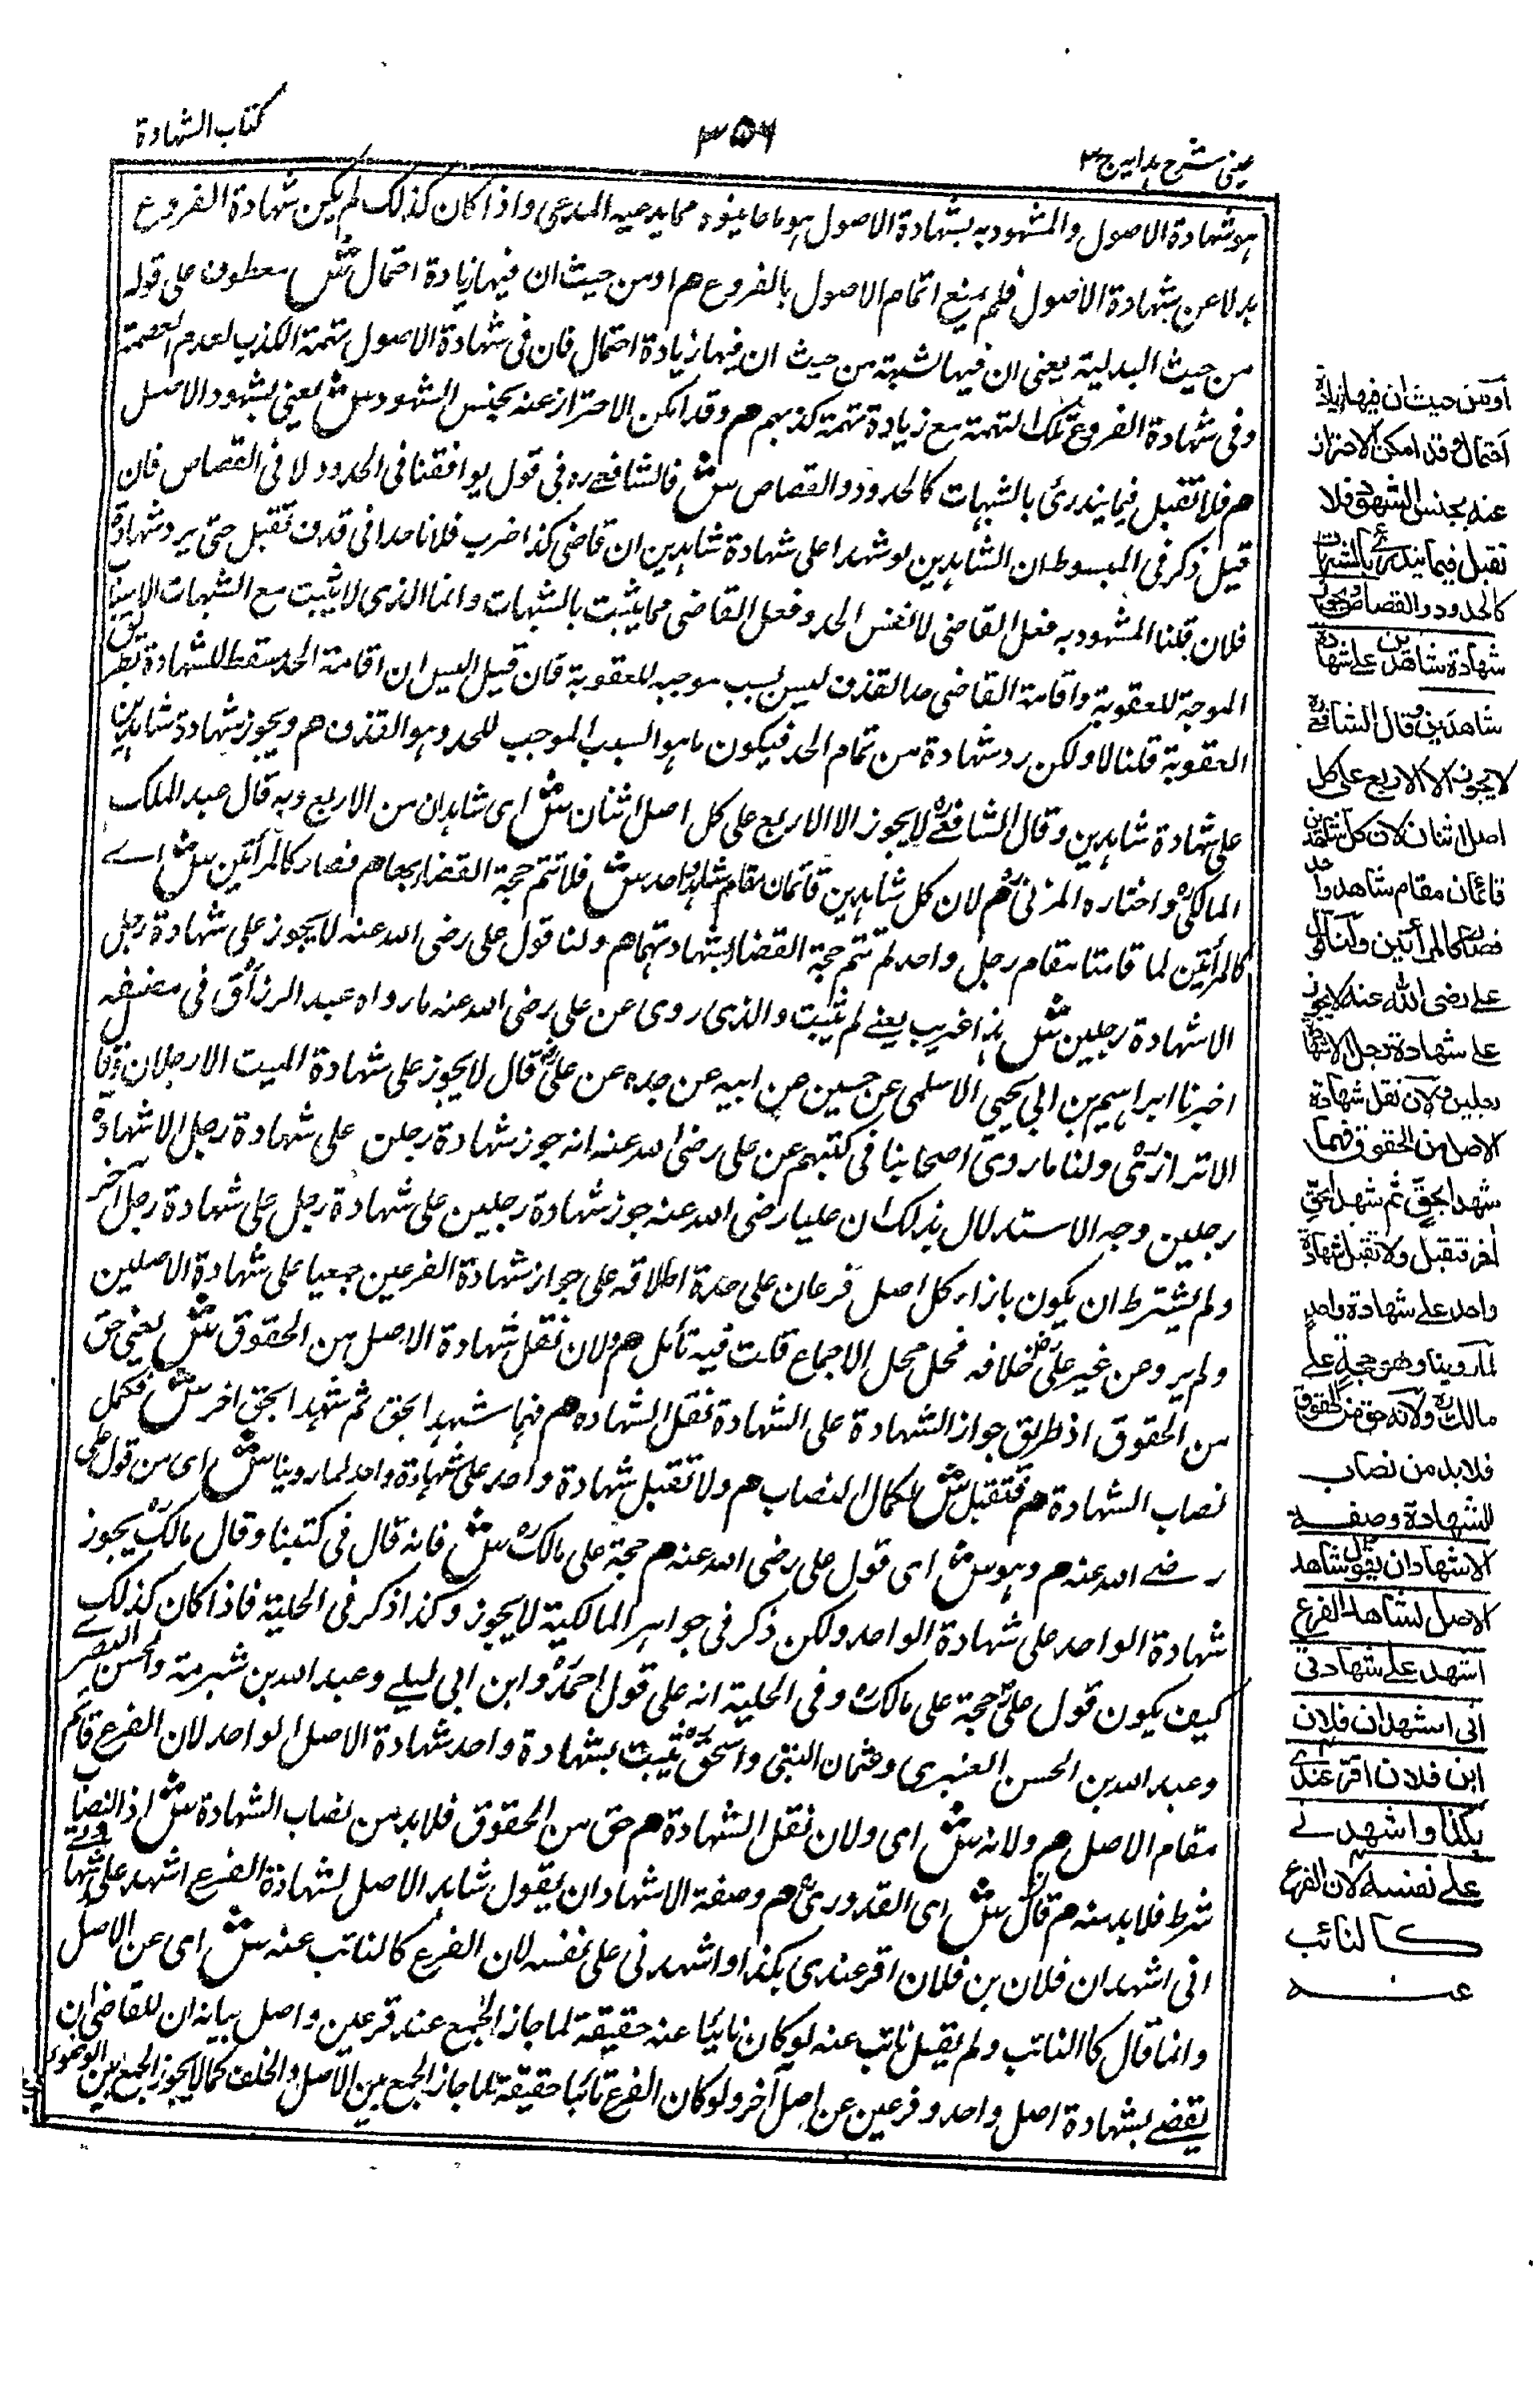 عینی شرح ہدایہ ج ۳
۳۵۶
کتاب الشهادة
ہو شہادة الاصول والمشهود بہ بشہادة الاصول ہو ما عاینوہ مما یدعیہ المدعی واذا کان کذلک لم یکن شہادة الفروع
بدلا عن شہادة الاصول فلم یمنع اتمام الاصول بالفروع ھم او من حیث ان فیہا زیادة احتمال ش معطوف علی قولہ
من حیث البدلیة یعنی ان فیہا الشبہة من حیث ان فیہا زیادة احتمال فان فی شہادة الاصول تہمة الکذب لعدم العصمة
وفی شہادة الفروع تلک التہمة مع زیادة تہمة کذبہم ھم وقد امکن الاحتراز عنہ بجنس الشہود ش یعنی بشہود الاصل
ھم فلا تقبل فیما یندرئ بالشبہات کالحدود والقصاص ش فالشافعے رہ فی قول یوافقنا فی الحدود لا فی القصاص فان
قیل ذکر فی المبسوط ان الشاہدین لو شہدا علی شہادة شاہدین ان قاضی کذا ضرب فلانا حدا فی قذف تقبل حتی یرد شہادة
فلان قلنا المشہود بہ فعل القاضی لا نفس الحد وفعل القاضی مما یثبت بالشبہات وانما الذی لا یثبت مع الشبہات الاسباب
الموجبة للعقوبة واقامة القاضی حد القذف لیس بسبب موجبہ للعقوبة فان قیل الیس ان اقامة الحد مسقط للشہادة بطریق
العقوبة قلنا لا ولکن رد شہادة من تمام الحد فیکون ما ہو السبب الموجب للحد وہو القذف ھم ویجوز شہادة شاہدین
علی شہادة شاہدین وقال الشافعے رہ لا یجوز الا الاربع علی کل اصل اثنان ش ای شاہدان من الاربع وبہ قال عبد الملک
المالکی رہ واختارہ المزنی رہ ھم لان کل شاہدین قائمان مقام شاہد واحد ش فلا تتم حجة القضاء بہما ھم فصار کالمرأتین ش اے
کالمرأتین لما قامتا مقام رجل واحد لم تتم حجة القضاء بشہادتہما ھم ولنا قول علی رضی اللہ عنہ لا یجوز علی شہادة رجل
الا شہادة رجلین ش ہذا غریب یعنے لم یثبت والذی روی عن علی رضی اللہ عنہ ما رواہ عبد الرزاق فی مصنفہ
اخبرنا ابراہیم بن ابی یحیی الاسلمی عن حسین عن ابیہ عن جدہ عن علی رض قال لا یجوز علی شہادة المیت الا رجلان وقال
الاترازی رہ ولنا ما روی اصحابنا فی کتبہم عن علی رضی اللہ عنہ انہ جوز شہادة رجلین علی شہادة رجل الا شہادة
رجلین وجہ الاستدلال بذلک ان علیا رضی اللہ عنہ جوز شہادة رجلین علی شہادة رجل علی شہادة رجل آخر
ولم یشترط ان یکون بازاء کل اصل فرعان علی حدة اطلاقہ علی جواز شہادة الفرعین جمیعا علی شہادة الاصلین
ولم یرو عن غیر علی رض خلافہ فحل محل الاجماع قلت فیہ تأمل ھم ولان نقل شہادة الاصل من الحقوق ش یعنی حق
من الحقوق اذ طریق جواز الشہادة علی الشہادة نقل الشہادہ ھم فہما شہدا بحق ثم شہدا بحق اخر ش فکمل
نصاب الشہادة ھم فتقبل ش لکمال النصاب ھم ولا تقبل شہادة واحد علی شہادة واحد لما روینا ش ای من قول علی
رضے اللہ عنہ ھم وہو ش ای قول علی رضی اللہ عنہ ھم حجة علی مالک رہ ش فانہ قال فی کتبنا وقال مالک رہ یجوز
شہادة الواحد علی شہادة الواحد ولکن ذکر فی جواہر المالکیة لا یجوز وکذا ذکر فی الحلیة فاذا کان کذلک
کیف یکون قول علی رض حجة علی مالک رہ وفی الحلیة انہ علی قول احمد رہ وابن ابی لیلے وعبد اللہ بن شبرمة والحسن البصرے
وعبد اللہ بن الحسن العنبری وعثمان البتی واسحق رہ یثبت بشہادة واحد شہادة الاصل الواحد لان الفرع قائم
مقام الاصل ھم ولانہ ش ای ولان نقل الشہادة ھم حق من الحقوق فلا بد من نصاب الشہادة ش اذ النصاب
شرط فلا بد منہ ھم قال ش ای القدوری رہ ھم وصفة الاشہاد ان یقول شاہد الاصل لشہادة الفرع اشہد علی شہادتے
انی اشہد ان فلان بن فلان اقر عندی بکذا واشہدنی علی نفسہ لان الفرع کالنائب عنہ ش ای عن الاصل
وانما قال کالنائب ولم یقل نائب عنہ لو کان نائبا عنہ حقیقة لما جاز الجمع عند فرعین واصل بیانہ ان للقاضی ان
یقضے بشہادة اصل واحد وفرعین عن اصل آخر ولو کان الفرع نائبا حقیقة لما جاز الجمع بین الاصل والخلف کما لا یجوز الجمع بین الوضوء
أو من حیث ان فیها زیادة
احتمال وقد امکن الاحتراز
عنه بجنس الشهود فلا
تقبل فیما یندرئ بالشبهات
کالحدود والقصاص ویجوز
شهادة شاهدین علے شهادة
شاهدین وقال الشافعے رہ
لا یجوز الا الاربع علی کل
اصل اثنان لان کل شاهدین
قائمان مقام شاهد واحد
فصار کالمرأتین ولنا قول
علے رضی الله عنه لا یجوز
علے شهادة رجل الا شهادة
رجلین ولان نقل شهادة
الاصل من الحقوق فهما
شهدا بحق ثم شهدا بحق
اخر فتقبل ولا تقبل شهادة
واحد علے شهادة واحد
لما روینا وهو حجة علے
مالک رہ ولانه حق من الحقوق
فلا بد من نصاب
الشهادة وصفة
الاشهاد ان یقول شاهد
الاصل لشاهد الفرع
اشهد علے شهادتی
انی اشهد ان فلان
ابن فلان اقر عندے
بکذا واشهدنے
علے نفسه لان الفرع
کالنائب
عنه